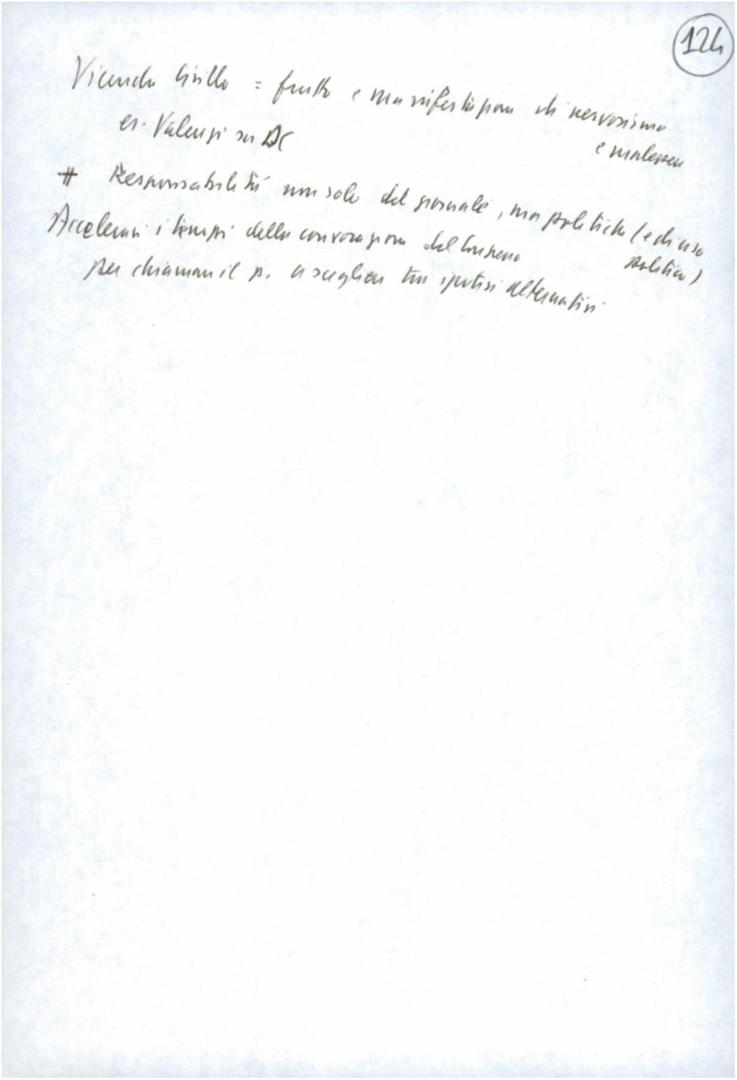 124
Vicenda Cirillo = frutto e manifestazione di nervosismo
e malessere
es. Valenzi su DC
# Responsabilità non solo del giornale, ma politiche (e di uso
politico)
Accelerare i tempi della convocazione del
per chiamare il p. a scegliere tra ipotesi alternative